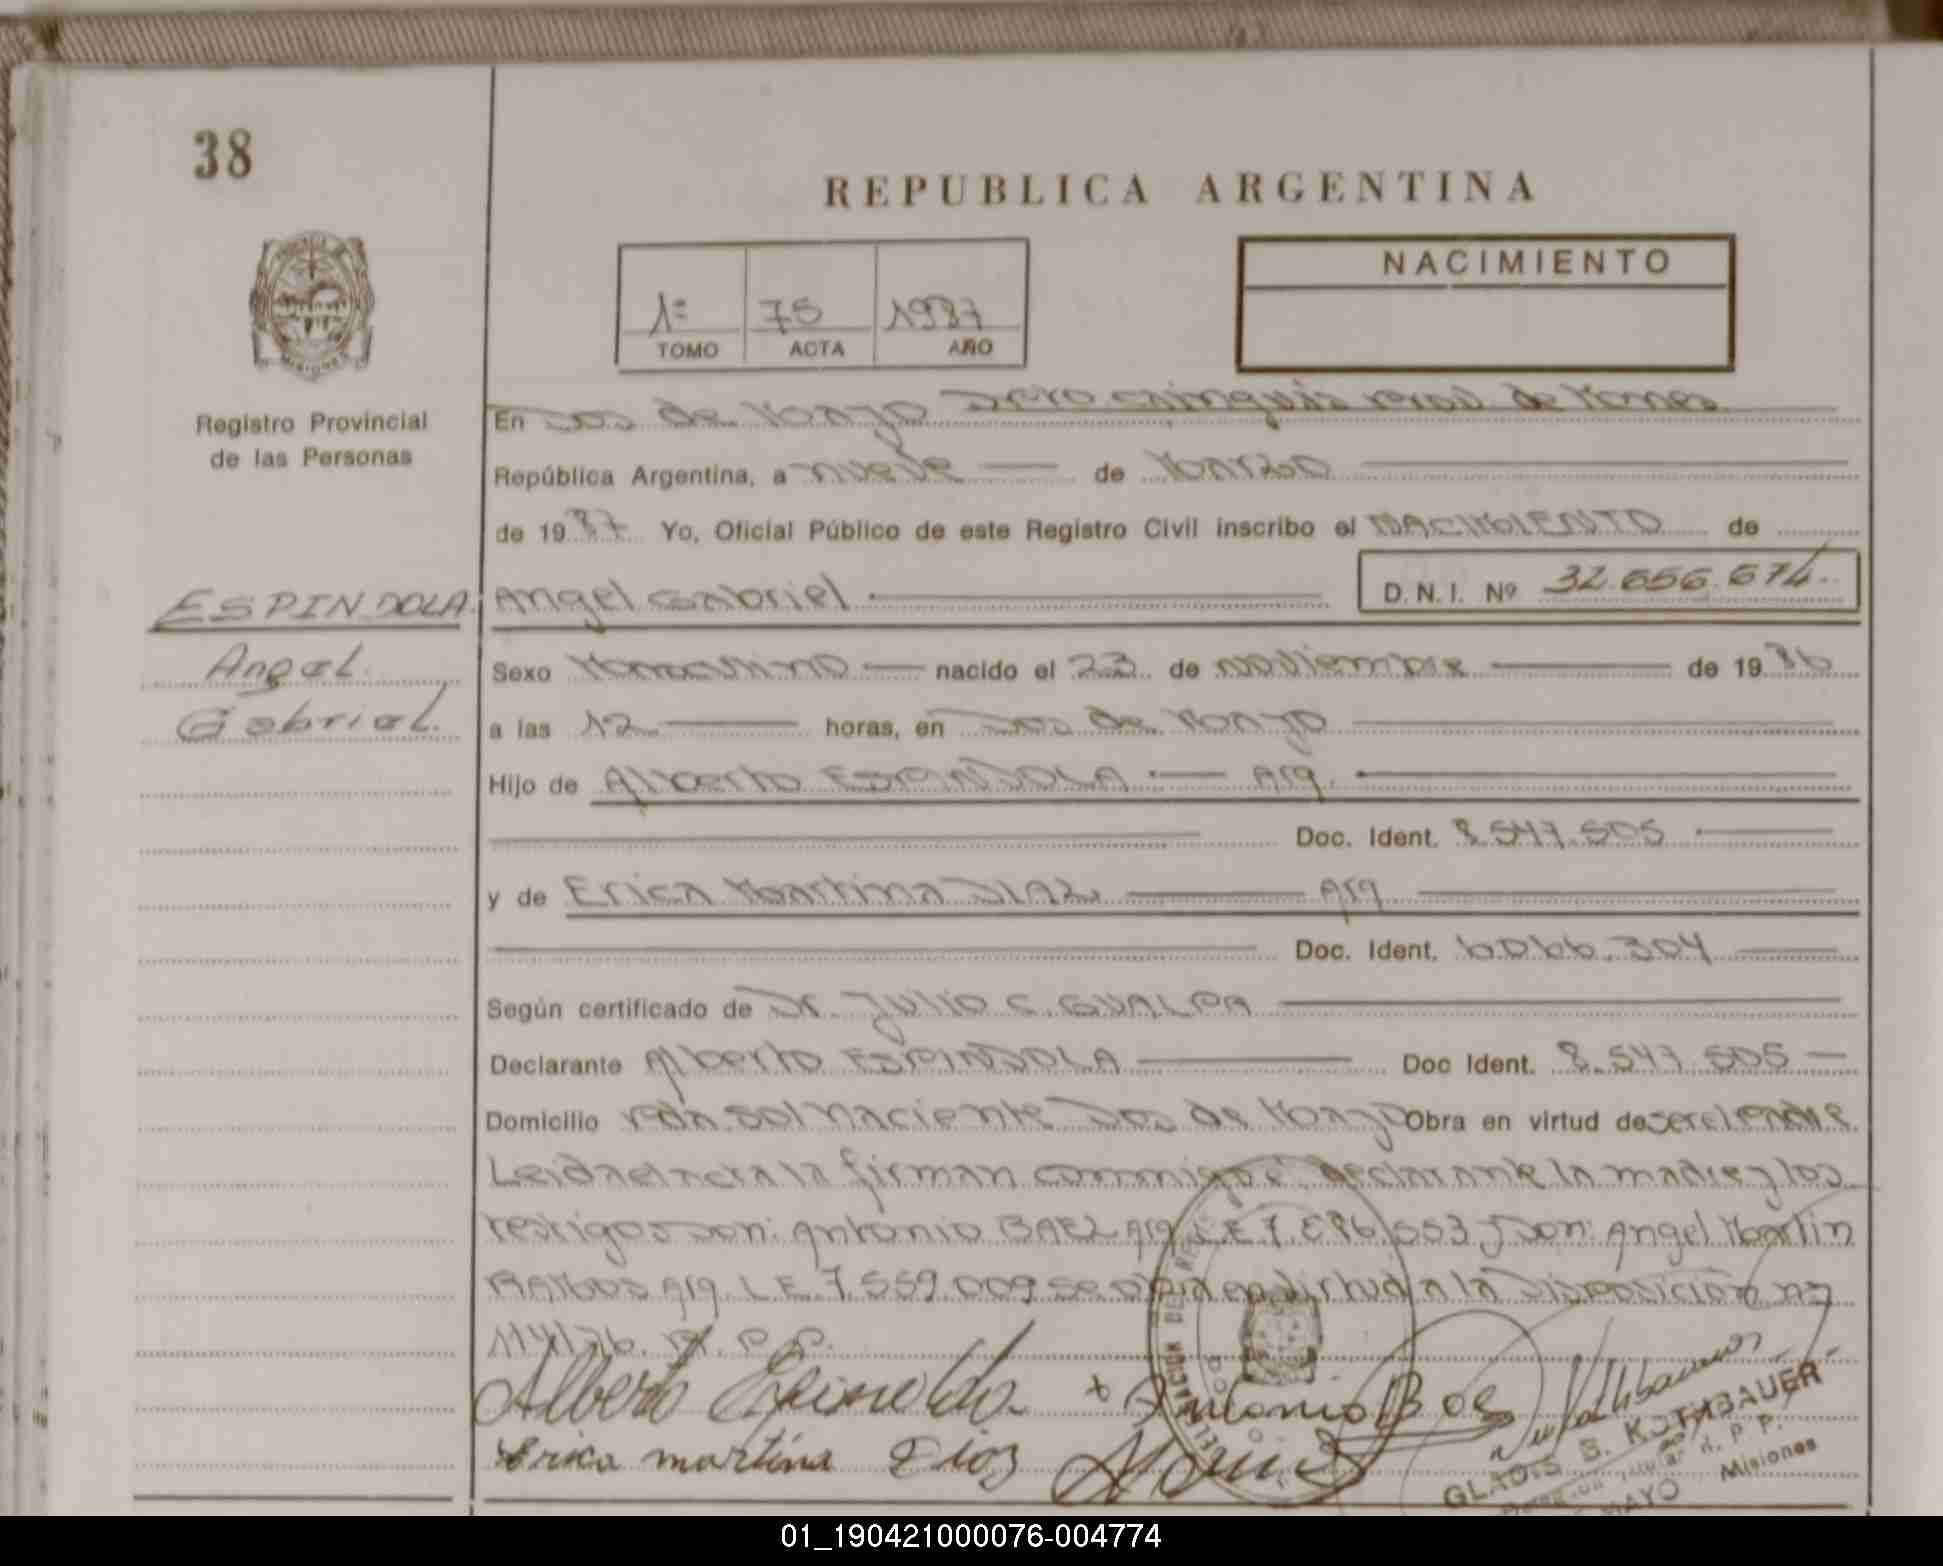 38
REPUBLICA ARGENTINA
NACIMIENTO
1º 75 1987
TOMO ACTA AÑO
MISIONES
Registro Provincial
de las Personas
En Dos de Mayo Dpto Cainguás Prov. de Mnes
República Argentina, a nueve de Marzo
de 1987 Yo, Oficial Público de este Registro Civil inscribo el NACIMIENTO de
ESPINDOLA Angel Gabriel D.N.I. Nº 32.656.674
Angel
Gabriel
Sexo Masculino nacido el 23 de noviembre de 1986
a las 12 horas, en Dos de Mayo
Hijo de Alberto ESPINDOLA Arg.
Doc. Ident. 8.547.505
y de Erica Martina DIAZ Arg
Doc. Ident. 6.066.304
Según certificado de Dr. Julio C. GUALPA
Declarante Alberto ESPINDOLA Doc Ident. 8.547.505
Domicilio Pda Sol Naciente Dos de Mayo Obra en virtud de ser el padre
Leida el acta la firman conmigo el declarante la madre y los
testigos Don: Antonio BAEZ Arg L.E. 7.886.553 y Don: Angel Martin
RAMOS Arg. L.E. 7.559.009 Se en virtud a la Disposición nº
114/76. R.P.P.
Alberto Espindola Antonio Baes
Erica martina Dios
GLADIS B. KOTHBAUER
R. P. P.
MAYO Misiones
01_190421000076-004774